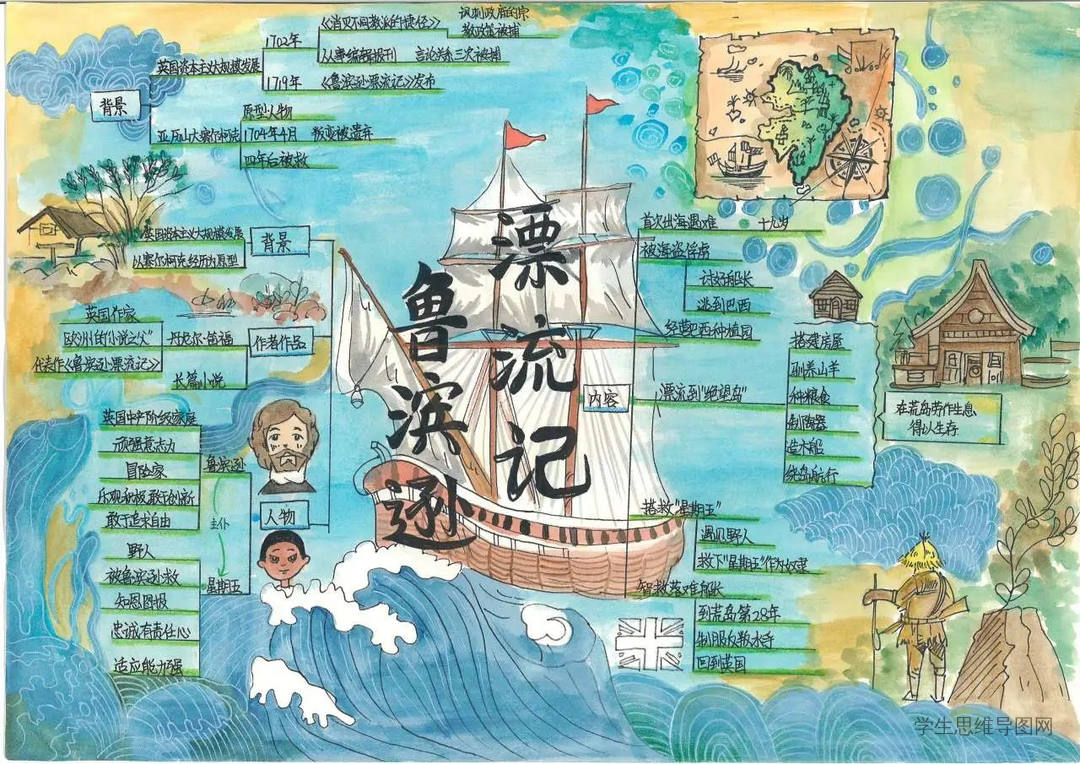 鲁滨逊
漂流记
背景
英国资本主义大规模发展
1702年
《消灭不同教派的捷径》
讽刺政府的宗
教政策被捕
从事编辑报刊
言论关系三次被捕
1719年
《鲁滨逊漂流记》发布
亚历山大塞尔柯克
原型人物
1704年4月
叛变被遗弃
四年后被救
背景
英国资本主义大规模发展
以塞尔柯克经历为原型
作者作品
丹尼尔·笛福
英国作家
欧洲的“小说之父”
代表作《鲁滨逊漂流记》
长篇小说
人物
鲁滨逊
英国中产阶级家庭
顽强意志力
冒险家
乐观积极敢于创新
敢于追求自由
主仆
星期五
野人
被鲁滨逊救
知恩图报
忠诚有责任心
适应能力强
内容
首次出海遇难
十九岁
被海盗俘虏
讨好船长
逃到巴西
经营巴西种植园
漂流到"绝望岛"
搭建房屋
驯养山羊
种粮食
制陶器
造木船
绕岛航行
在荒岛劳作生息
得以生存
搭救"星期五"
遇见野人
救下"星期五"作为奴隶
智救落难船长
到荒岛第28年
制服反叛水手
回到英国
学生思维导图网